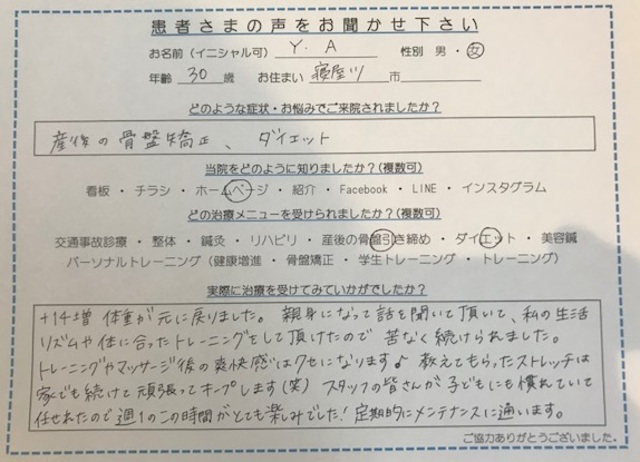 患者さまの声をお聞かせ下さい
お名前(イニシャル可) Y. A 性別 男・女
年齢 30 歳 お住まい 寝屋川 市
どのような症状・お悩みでご来院されましたか?
産後の骨盤矯正、ダイエット
当院をどのように知りましたか?(複数可)
看板・チラシ・ホームページ・紹介・Facebook・LINE・インスタグラム
どの治療メニューを受けられましたか?(複数可)
交通事故診療・整体・鍼灸・リハビリ・産後の骨盤引き締め・ダイエット・美容鍼
パーソナルトレーニング(健康増進・骨盤矯正・学生トレーニング・トレーニング)
実際に治療を受けてみていかがでしたか?
+14増 体重が元に戻りました。親身になって話を聞いて頂いて、私の生活
リズムや体に合ったトレーニングをして頂けたので 苦なく続けられました。
トレーニングやマッサージ後の爽快感はクセになります♪ 教えてもらったストレッチは
家でも続けて頑張ってキープします(笑) スタッフの皆さんが子どもにも慣れていて
任せれたので週1のこの時間がとても楽しみでした!定期的にメンテナンスに通います。
ご協力ありがとうございました。